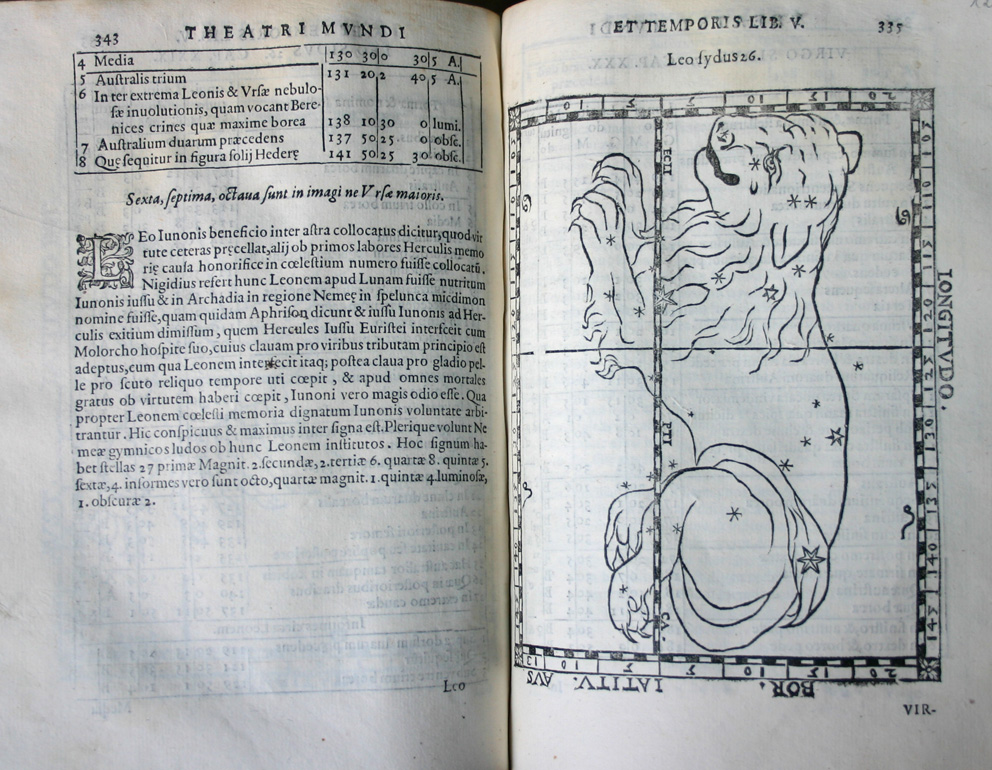 343 THEATRI MVNDI
4 Media 130 30 0 30 5 A.
5 Auſtralis trium 131 20 2 40 5 A.
6 In ter extrema Leonis & Vrſæ nebulo-
ſæ inuolutionis, quam vocant Bere-
nices crines quæ maxime borea 138 10 30 0 lumi.
7 Auſtralium duarum præcedens 137 50 25 0 obſc.
8 Quę ſequitur in figura ſolij Hederę 141 50 25 30 obſc.
Sexta, ſeptima, octaua ſunt in imagi ne Vrſæ maioris.
LEo Iunonis beneficio inter aſtra collocatus dicitur, quod vir
tute ceteras pręcellat, alij ob primos labores Herculis memo
rię cauſa honorifice in cœleſtium numero fuiſſe collocatū.
Nigidius refert hunc Leonem apud Lunam fuiſſe nutritum
Iunonis iuſſu & in Archadia in regione Nemeę in ſpelunca micdimon
nomine fuiſſe, quam quidam Aphriſon dicunt & iuſſu Iunonis ad Her-
culis exitium dimiſſum, quem Hercules Iuſſu Euriſtei interfecit cum
Molorcho hoſpite ſuo, cuius clauam pro viribus tributam principio eſt
adeptus, cum qua Leonem interfecit itaq; poſtea claua pro gladio pel-
le pro ſcuto reliquo tempore uti cœpit, & apud omnes mortales
gratus ob virtutem haberi cœpit, Iunoni vero magis odio eſſe. Qua
propter Leonem cœleſti memoria dignatum Iunonis voluntate arbi-
trantur. Hic conſpicuus & maximus inter ſigna eſt. Plerique volunt Ne
meæ gymnicos ludos ob hunc Leonem inſtitutos. Hoc ſignum ha-
bet ſtellas 27 primæ Magnit. 2. ſecundæ, 2. tertiæ 6. quartæ 8. quintæ 5.
ſextæ, 4. informes vero ſunt octo, quartæ magnit. 1. quintæ 4. luminoſæ,
1. obſcuræ 2.
Leo
ET TEMPORIS LIB. V. 335
Leo ſydus 26.
ECLI
PTI
CA.
105 110 115 120 125 130 135 140 145
LONGITVDO.
AVS LATITV. BOR.
VIR-